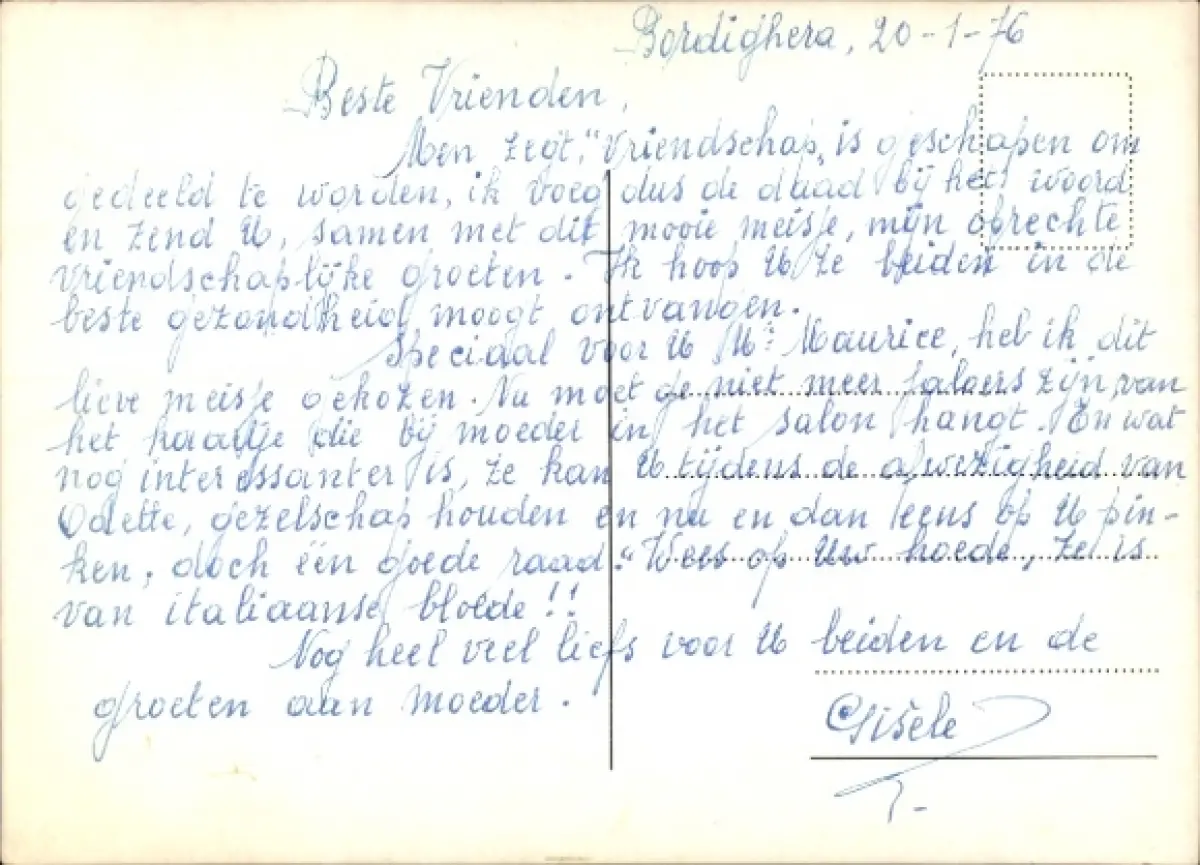 Bordighera, 20-1-76
Beste Vrienden,
Men zegt, "Vriendschap" is geschapen om
gedeeld te worden, ik voeg dus de daad bij het woord
en zend U, samen met dit mooie meisje, mijn oprechte
vriendschaplijke groeten. Ik hoop U ze beiden in de
beste gezondheid moogt ontvangen.
Speciaal voor U Mr Maurice, heb ik dit
lieve meisje gekozen. Nu moet ge niet meer jaloers zijn, van
het kaartje die bij moeder in het salon hangt. En wat
nog interessanter is, ze kan U tijdens de afwezigheid van
Odette, gezelschap houden en nu en dan eens op U pin-
ken, doch één goede raad: "Wees op Uw hoede, ze is
van italiaanse bloede!!
Nog heel veel liefs voor U beiden en de
groeten aan moeder.
Gisèle